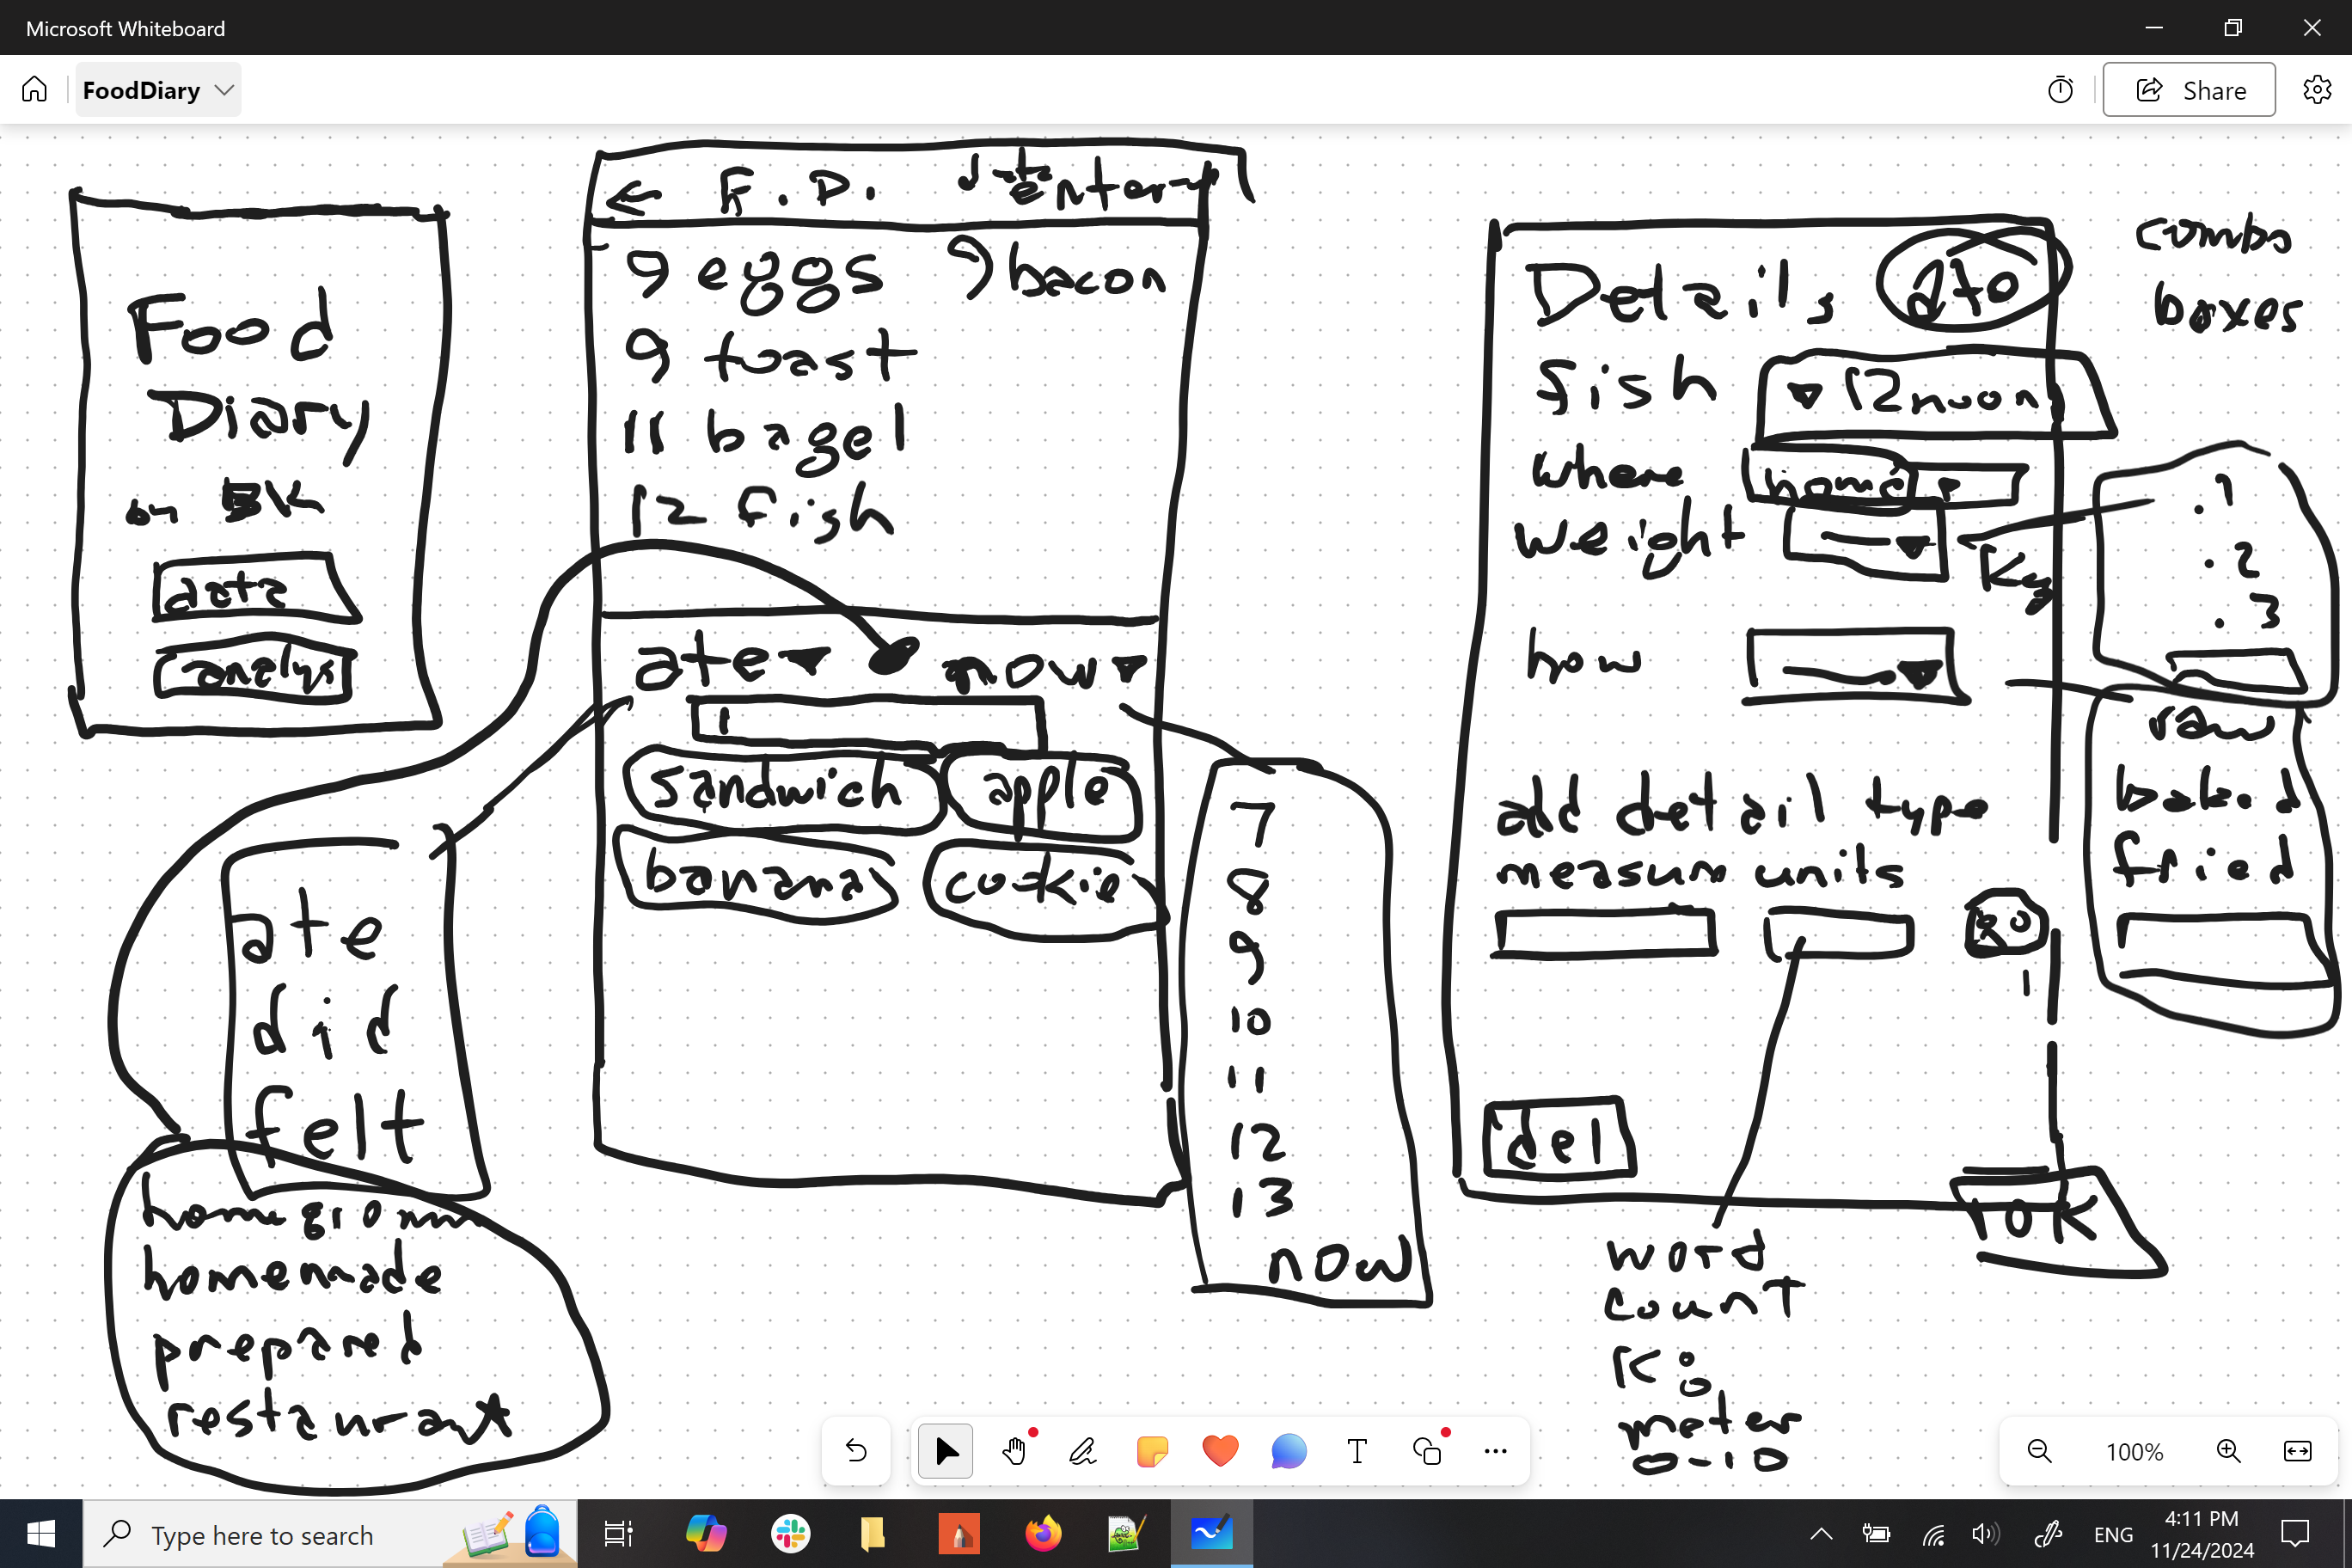 Microsoft Whiteboard
FoodDiary
Share
Food
Diary
by BK
data
analys
← F.D. data entery
9 eggs 9 bacon
9 toast
11 bagel
12 fish
ate now
sandwich apple
bananas cookie
ate
did
felt
home grown
homemade
prepared
restaurant
7
8
9
10
11
12
13
now
Details ate
fish 12 noon
where home
weight Kg
how
add detail type
measure units
go
del
OK
combo
boxes
.1
.2
.3
raw
baked
fried
word
count
Kg
meter
0-10
100%
Type here to search
ENG
4:11 PM
11/24/2024